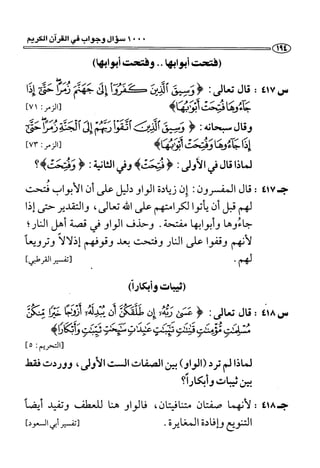 ١٠٠٠ سؤال وجواب في القرآن الكريم
١٩٤
(فتحت أبوابها .. وفتحت أبوابها)
س ٤١٧ : قال تعالى: ﴿ وَسِيقَ الَّذِينَ كَفَرُوا إِلَىٰ جَهَنَّمَ زُمَرًا حَتَّىٰ إِذَا
جَاءُوهَا فُتِحَتْ أَبْوَابُهَا ﴾ [الزمر: ٧١]
وقال سبحانه: ﴿ وَسِيقَ الَّذِينَ اتَّقَوْا رَبَّهُمْ إِلَى الْجَنَّةِ زُمَرًا حَتَّىٰ
إِذَا جَاءُوهَا وَفُتِحَتْ أَبْوَابُهَا ﴾ [الزمر: ٧٣]
لماذا قال في الأولى: ﴿ فُتِحَتْ ﴾ وفي الثانية: ﴿ وَفُتِحَتْ ﴾؟
جـ ٤١٧ : قال المفسرون: إن زيادة الواو دليل على أن الأبواب فُتحت
لهم قبل أن يأتوا لكرامتهم على الله تعالى، والتقدير حتى إذا
جاءُوها وأبوابها مفتحة. وحذف الواو في قصة أهل النار؛
لأنهم وقفوا على النار وفتحت بعد وقوفهم إذلالاً وترويعاً
لهم. [تفسير القرطبي]
(ثيبات وأبكاراً)
س ٤١٨ : قال تعالى: ﴿ عَسَىٰ رَبُّهُ إِن طَلَّقَكُنَّ أَن يُبْدِلَهُ أَزْوَاجًا خَيْرًا مِّنكُنَّ
مُسْلِمَاتٍ مُّؤْمِنَاتٍ قَانِتَاتٍ تَائِبَاتٍ عَابِدَاتٍ سَائِحَاتٍ ثَيِّبَاتٍ وَأَبْكَارًا ﴾
[التحريم: ٥]
لماذا لم ترد (الواو) بين الصفات الست الأولى، ووردت فقط
بين ثيبات وأبكاراً؟
جـ ٤١٨ : لأنهما صفتان متنافيتان، فالواو هنا للعطف وتفيد أيضاً
التنويع وإفادة المغايرة. [تفسير أبي السعود]